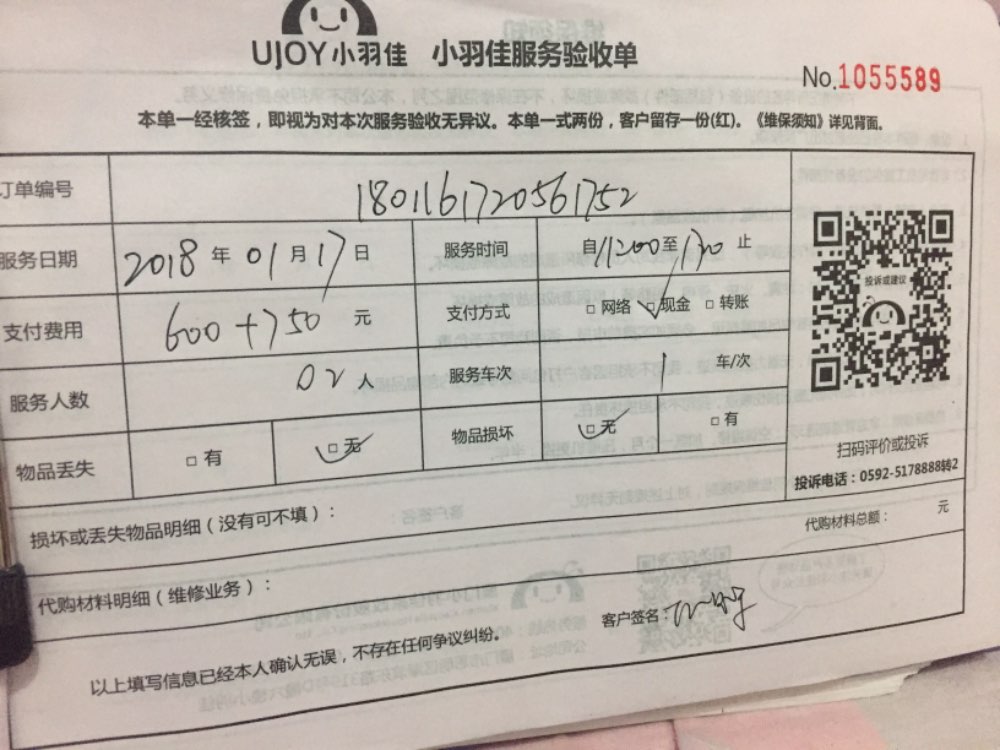 UJOY小羽佳 小羽佳服务验收单
No.1055589
本单一经核签，即视为对本次服务验收无异议。本单一式两份，客户留存一份(红)。《维保须知》详见背面。
订单编号 1801161720561752
服务日期 2018 年 01 月 17 日 服务时间 自 11200 至 1720 止
支付费用 600+750 元 支付方式 □ 网络 □ 现金 □ 转账
服务人数 02 人 服务车次 1 车/次
物品丢失 □ 有 □ 无 物品损坏 □ 无 □ 有
投诉或建议
扫码评价或投诉
投诉电话：0592-5178888转2
损坏或丢失物品明细（没有可不填）：
代购材料总额： 元
代购材料明细（维修业务）：
客户签名：
以上填写信息已经本人确认无误，不存在任何争议纠纷。